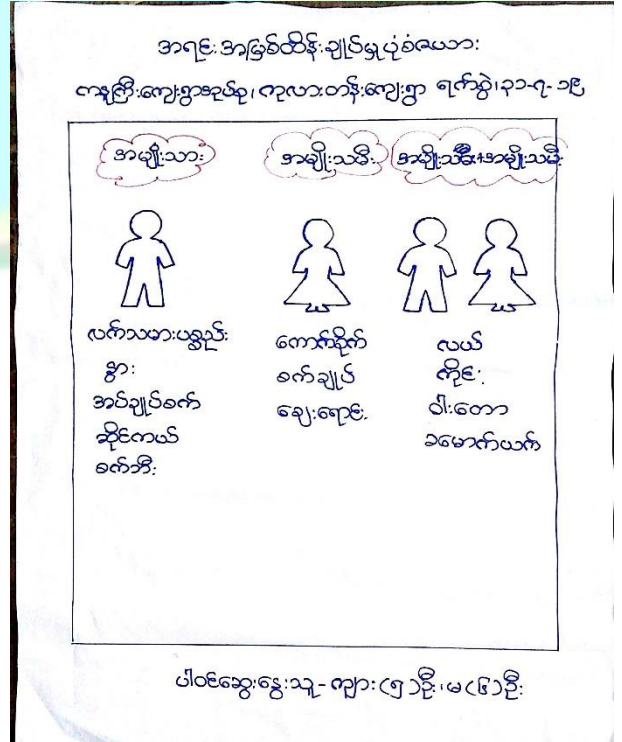 အရင်းအမြစ်ထိန်းချုပ်မှုပုံစံဇယား
ကနူကြီးကျေးရွာအုပ်စု၊ ကုလားတန်းကျေးရွာ ရက်စွဲ၊ ၃၁-၇-၁၉
အမျိုးသား အမျိုးသမီး အမျိုးသား+အမျိုးသမီး
လက်သမားပစ္စည်း
နွား
အပ်ချုပ်စက်
ဆိုင်ကယ်
စက်ဘီး
ကောက်စိုက်
စက်ချုပ်
ဈေးရောင်း
လယ်
ကိုင်း
ဝါးတော
ခမောက်ယက်
ပါဝင်ဆွေးနွေးသူ - ကျား (၅) ဦး၊ မ (၆) ဦး